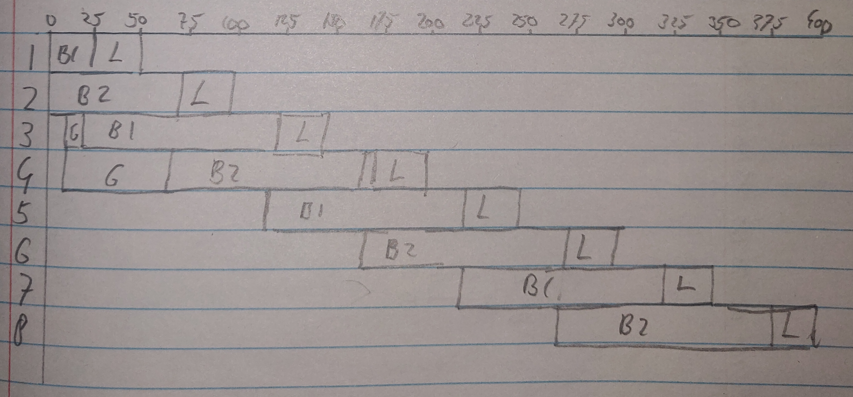 0 25 50 75 100 125 150 175 200 225 250 275 300 325 350 375 400
1 B1 L
2 B2 L
3 G B1 L
4 G B2 L
5 B1 L
6 B2 L
7 B1 L
8 B2 L